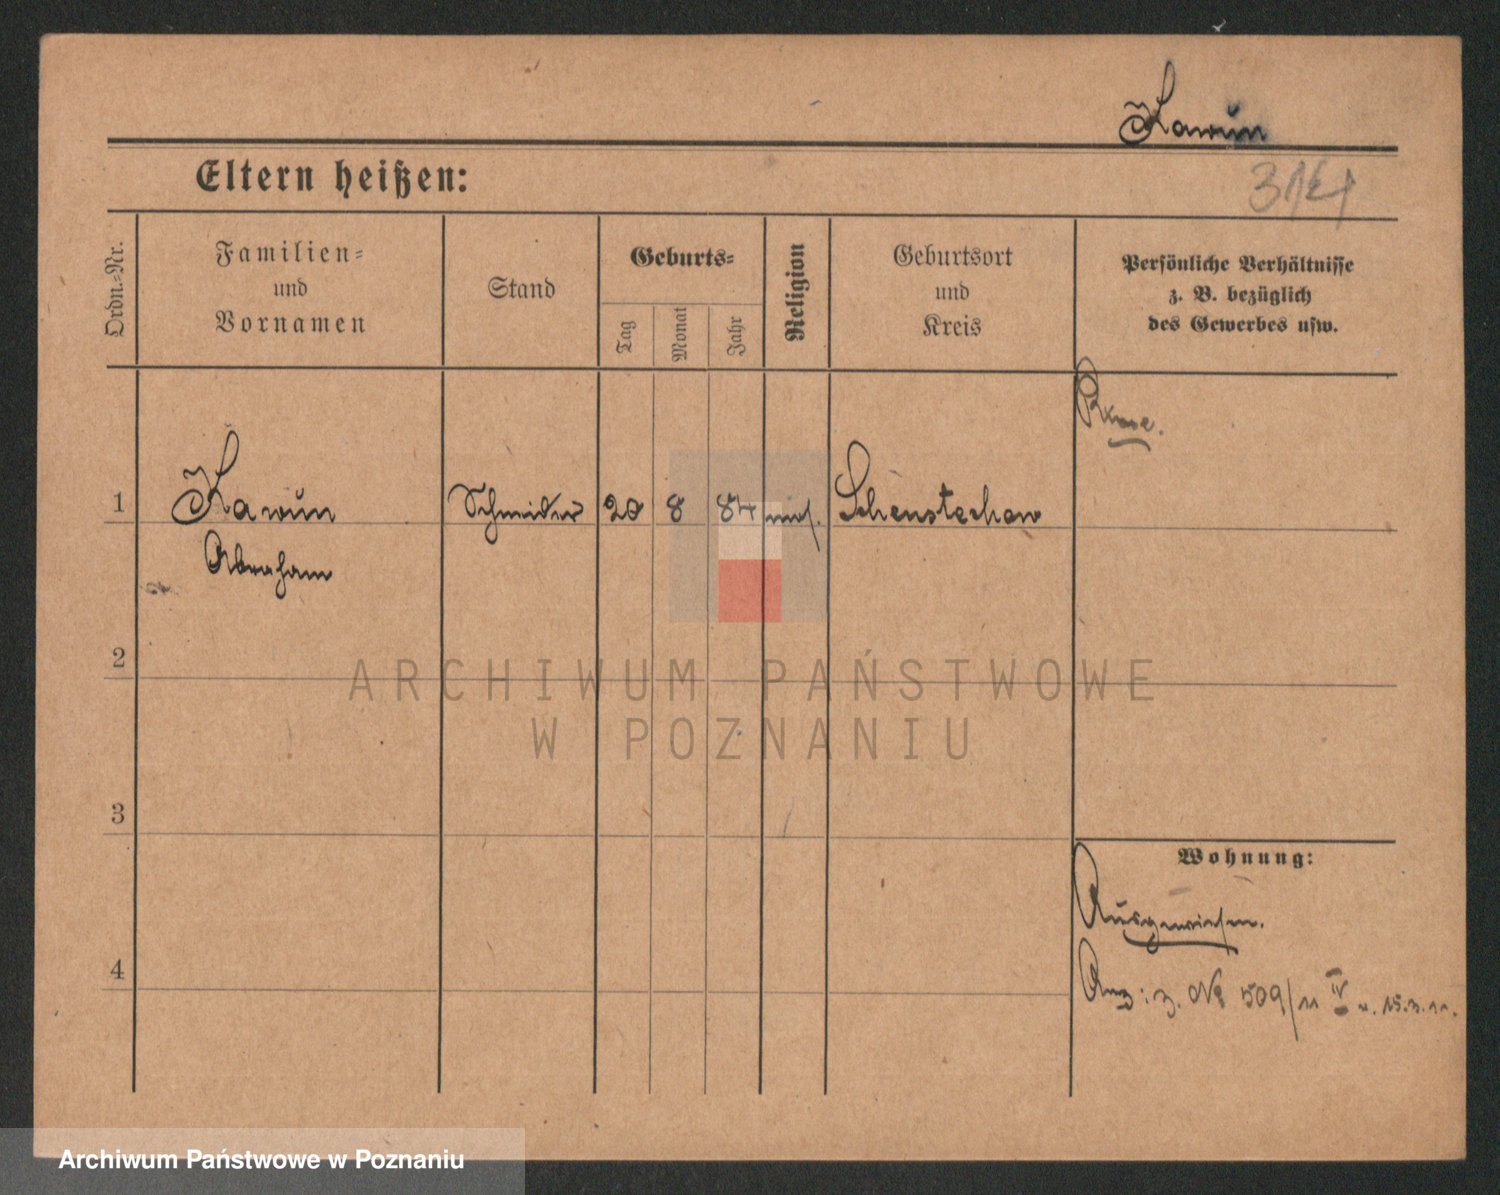 Kawun
Eltern heißen:
Ordn.-Nr.
Familien-
und
Vornamen
Stand
Geburts-
Tag
Monat
Jahr
Religion
Geburtsort
und
Kreis
Persönliche Verhältnisse
z. B. bezüglich
des Gewerbes usw.
1
Kawun
Abraham
Schneider
20
8
84
mos.
2
3
4
Wohnung:
Ausgewiesen.
Anz: z. No 509/11 IV v. 15.3.11.
ARCHIWUM PAŃSTWOWE
W POZNANIU
Archiwum Państwowe w Poznaniu